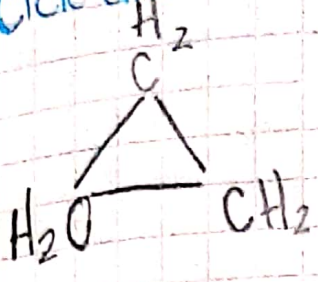 H2
C
H2O CH2